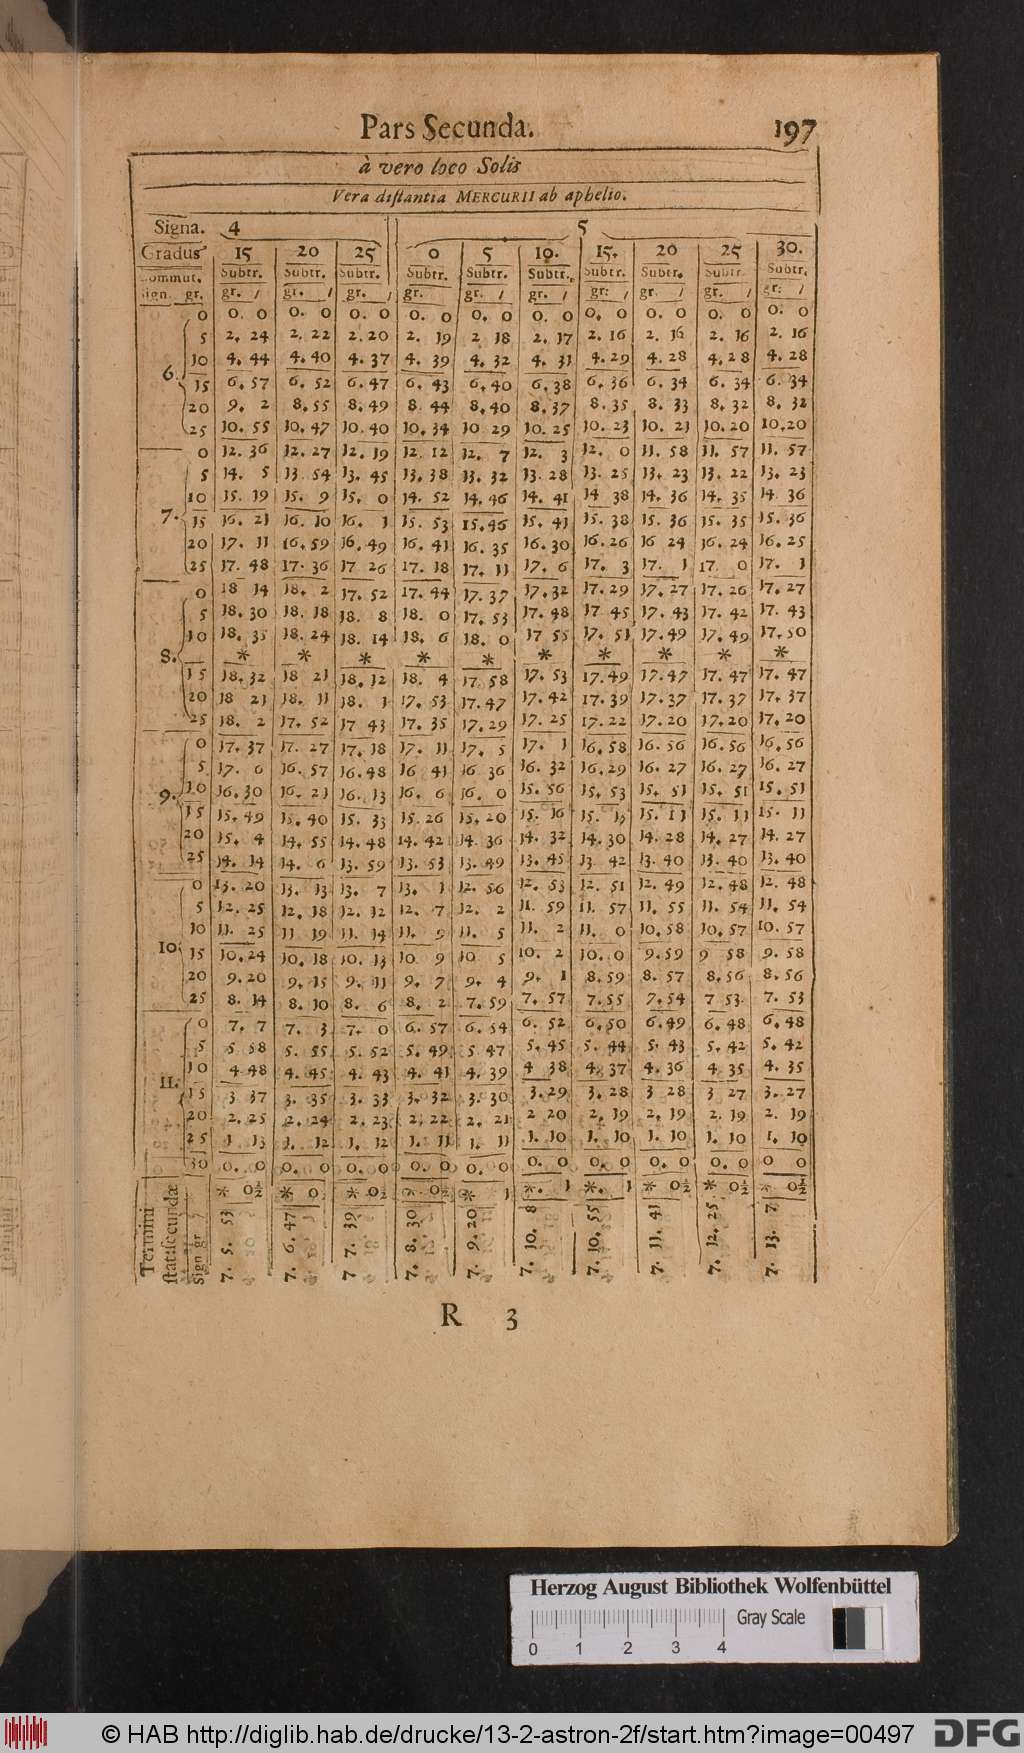 Pars Secunda. 197
à vero loco Solis
Vera distantia MERCURII ab aphelio.
Signa. 4 5
Gradus 15 20 25 0 5 10. 15. 20 25 30.
Commut. Subtr. Subtr. Subtr. Subtr. Subtr. Subtr. Subtr. Subtr. Subtr. Subtr.
sign. gr. gr. / gr. / gr. / gr. gr. / gr. / gr: / gr. / gr. / gr: /
0 0. 0 0. 0 0. 0 0. 0 0. 0 0. 0 0. 0 0. 0 0. 0 0. 0
5 2. 24 2. 22 2. 20 2. 19 2 18 2. 17 2. 16 2. 16 2. 16 2. 16
10 4. 44 4. 40 4. 37 4. 39 4. 32 4. 31 4. 29 4. 28 4. 28 4. 28
6. 15 6. 57 6. 52 6. 47 6. 43 6. 40 6. 38 6. 36 6. 34 6. 34 6. 34
20 9. 2 8. 55 8. 49 8 44 8. 40 8. 37 8. 35 8. 33 8. 32 8. 32
25 10. 55 10. 47 10. 40 10. 34 10 29 10. 25 10. 23 10. 21 10. 20 10. 20
0 12. 36 12. 27 12. 19 12. 12 12. 7 12. 3 12. 0 11. 58 11. 57 11. 57
5 14. 5 13 54 13. 45 13. 38 13. 32 13. 28 13. 25 13. 23 13. 22 13. 23
10 15. 19 15. 9 15. 0 14. 52 14. 46 14. 41 14 38 14. 36 14. 35 14. 36
7. 15 16. 21 16. 10 16. 1 15. 53 15. 46 15. 41 15. 38 15. 36 15. 35 15. 36
20 17. 11 16. 59 16. 49 16. 41 16. 35 16. 30 16. 26 16 24 16. 24 16. 25
25 17. 48 17. 36 17 26 17. 18 17. 11 17. 6 17. 3 17. 1 17. 0 17. 1
0 18 14 18. 2 17. 52 17. 44 17. 37 17. 32 17. 29 17. 27 17. 26 17. 27
5 18. 30 18. 18 18. 8 18. 0 17. 53 17. 48 17 45 17. 43 17. 42 17. 43
10 18. 35 18. 24 18. 14 18. 6 18. 0 17 55 17. 51 17. 49 17. 49 17. 50
8. * * * * * * * * * *
15 18. 32 18 21 18. 12 18. 4 17 58 17. 53 17. 49 17. 47 17. 47 17. 47
20 18 21 18. 11 18. 1 17. 53 17. 47 17. 42 17. 39 17. 37 17. 37 17. 37
25 18. 2 17. 52 17 43 17. 35 17. 29 17. 25 17. 22 17. 20 17. 20 17. 20
0 17. 37 17. 27 17. 18 17. 11 17. 5 17. 1 16. 58 16. 56 16. 56 16. 56
5 17. 6 16. 57 16. 48 16 41 16 36 16. 32 16. 29 16. 27 16. 27 16. 27
9. 10 16. 30 16. 21 16. 13 16. 6 16. 0 15. 56 15. 53 15. 51 15. 51 15. 51
15 15. 49 15. 40 15. 33 15. 26 15. 20 15. 16 15. 15. 11 15. 11 15. 11
20 15. 4 14. 55 14. 48 14. 42 14. 36 14. 32 14. 30 14. 28 14. 27 14. 27
25 14. 14 14. 6 13. 59 13. 53 13. 49 13. 45 13 42 13. 40 13. 40 13. 40
0 13. 20 13. 13 13. 7 13. 1 12. 56 12. 53 12. 51 12. 49 12. 48 12. 48
5 12. 25 12. 18 12. 12 12. 7 12. 2 11. 59 11. 57 11. 55 11. 54 11. 54
10 11. 25 11 19 11. 14 11. 9 11. 5 11. 2 11. 0 10. 58 10. 57 10. 57
10. 15 10. 24 10. 18 10. 13 10 9 10 5 10. 2 10. 0 9. 59 9 58 9. 58
20 9. 20 9. 15 9. 11 9. 7 9. 4 9. 1 8. 59 8. 57 8. 56 8. 56
25 8. 14 8. 10 8. 6 8. 2 7. 59 7. 57 7. 55 7. 54 7 53. 7. 53
0 7. 7 7. 3 7. 0 6. 57 6. 54 6. 52 6. 50 6. 49 6. 48 6. 48
5 5 58 5. 55 5. 52 5. 49 5 47 5. 45 5. 44 5. 43 5. 42 5. 42
11. 10 4 48 4. 45 4. 43 4. 41 4. 39 4 38 4. 37 4. 36 4 35 4. 35
15 3 37 3. 35 3. 33 3. 32 3. 30 3. 29 3. 28 3 28 3 27 3. 27
20 2. 25 2. 24 2. 23 2. 22 2. 21 2 20 2. 19 2. 19 2. 19 2. 19
25 1 13 1. 12 1. 12 1. 11 1. 11 1. 10 1. 10 1. 10 1. 10 1. 10
30 0. 0 0. 0 0. 0 0. 0 0. 0 0. 0 0. 0 0. 0 0. 0 0 0
* 0½ * 0 * 0½ * 0½ * 1 *. 1 *. 1 * 0½ * 0½ * 0½
Termini
stat: secundæ
Sign gr
7. 5. 53 7. 6. 47 7 7. 39 7. 8. 30 7. 9. 20 7. 10. 8 7. 10. 55 7. 11. 41 7. 12. 25 7. 13. 7
R 3
Herzog August Bibliothek Wolfenbüttel
Gray Scale
0 1 2 3 4
© HAB http://diglib.hab.de/drucke/13-2-astron-2f/start.htm?image=00497 DFG